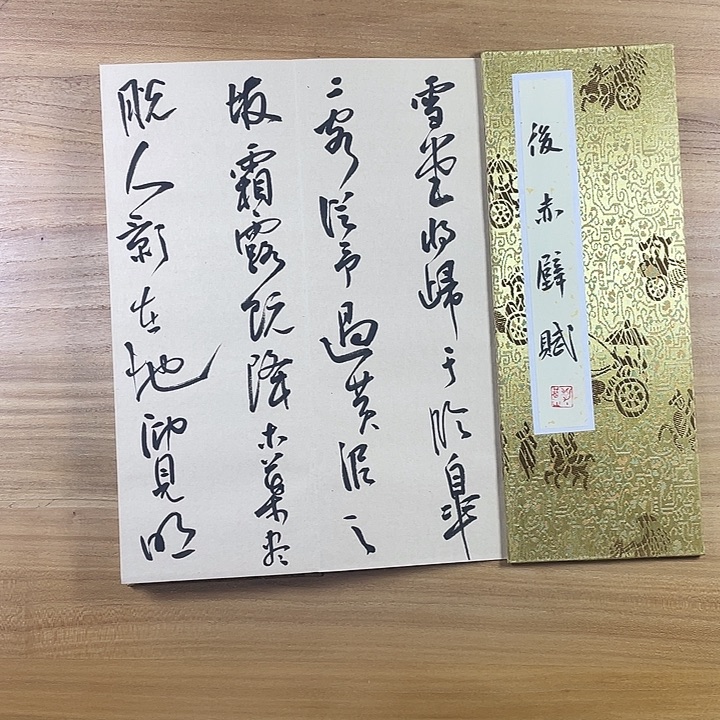 後赤壁賦
雪堂将歸于臨皋
二客從予過黄泥之
坂霜露既降木葉盡
脱人影在地仰見明